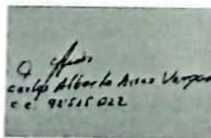 Carlos Alberto Arias Vargas
c.c. 98515022